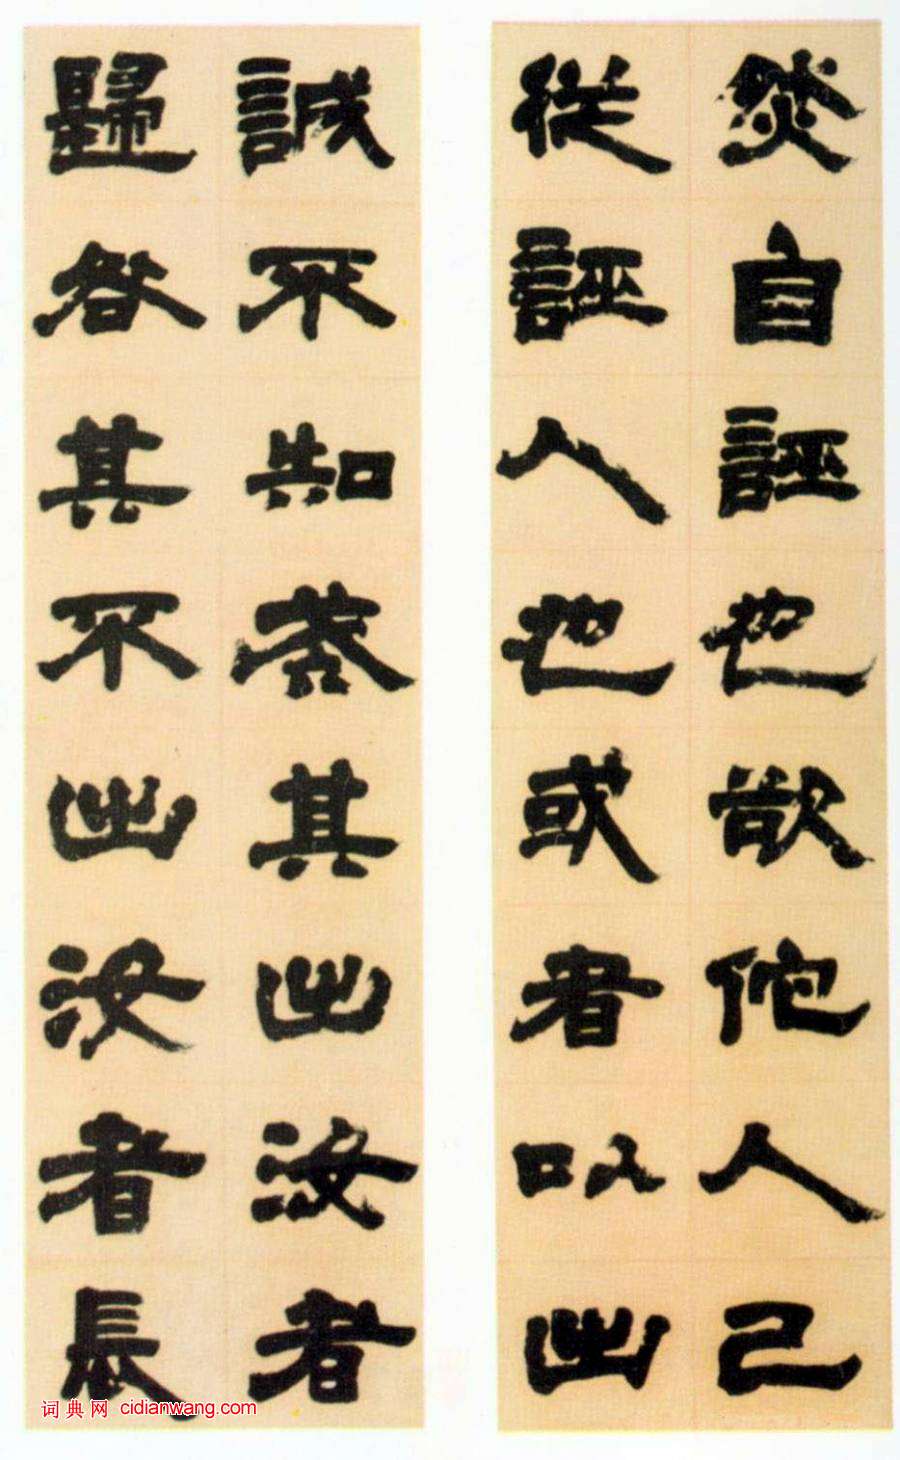 然自誣也欲佗人己
從誣人也或者以出
誠不知戒其出汝者
歸咎其不出汝者長
词典网 cidianwang.com